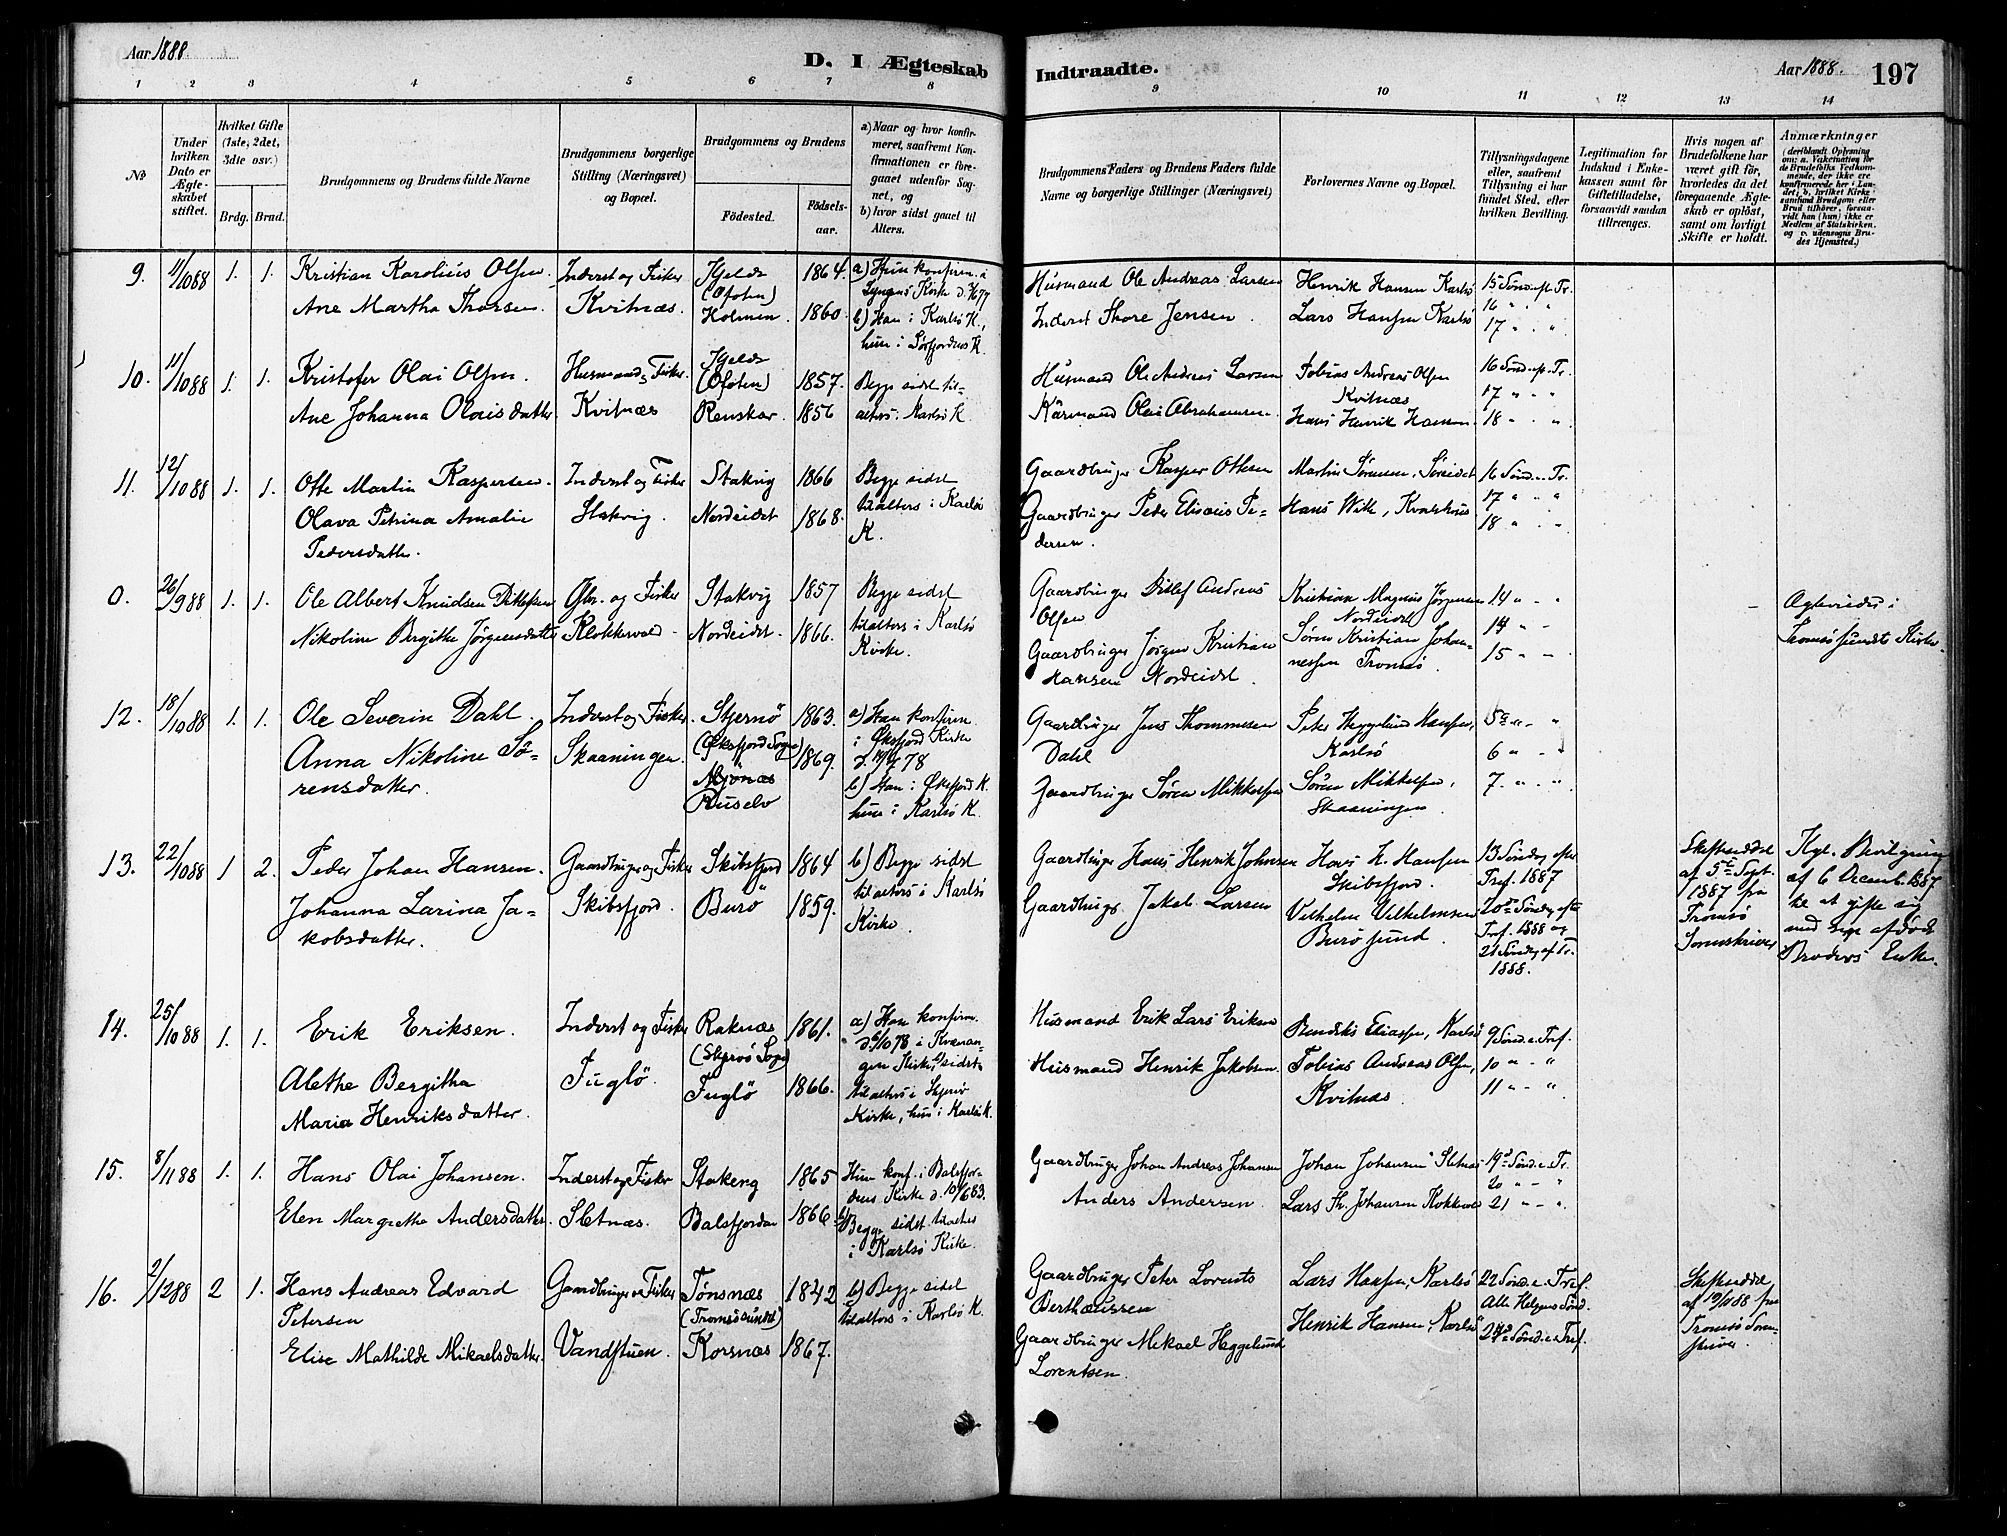 Aar 1888.
D. I Ægteskab
Indtraadte.
Aar 1888.
197
1 2 3 4 5 6 7 8
9 10 11 12 13 14
No
Under hvilken Dato er Ægteskabet stiftet.
Hvilket Gifte (1ste, 2det, 3die osv.)
Brdg. Brud.
Brudgommens og Brudens fulde Navne
Brudgommens borgerlige Stilling (Næringsvei) og Bopæl.
Brudgommens og Brudens
Födested.
Födselsaar.
a) Naar og hvor konfirmeret, saafremt Konfirmationen er foregaaet udenfor Sognet, og
b) hvor sidst gaaet til Alters.
Brudgommens Faders og Brudens Faders fulde Navne og borgerlige Stillinger (Næringsvei)
Forlovernes Navne og Bopæl.
Tillysningsdagene eller, saafremt Tillysning ei har fundet Sted, efter hvilken Bevilling.
Legitimation for Indskud i Enkekassen samt for Giftetilladelse, forsaavidt saadan tiltrænges.
Hvis nogen af Brudefolkene har været gift før, hvorledes da det foregaaende Ægteskab er opløst, samt om lovligt Skifte er holdt.
Anmærkninger
(deriblandt Oplysning om: a. Vakcination for de Brudefolks Vedkommende, der ikke ere konfirmerede her i Landet; b. hvilket Kirkesamfund Brudgom eller Brud tilhører, forsaavidt han (hun) ikke er Medlem af Statskirken, og c. udensogns Brudes Hjemsted.)
9. 11/10 88 1. 1. Kristian Karolius Olsen. Inderst og Fisker Kjelde (Ofoten) 1864. a) Hun konfirm. i Lyngens Kirke d.
Ane Martha Thorsen. Kvitnæs. Holmen 1860. b) Han i Karlsö K., hun i Sörfjordens K.
Husmand Ole Andreas Larsen Henrik Hansen Karlsö 15 Sönd. ef. Tr.
Inderst Thore Jensen. Lars Hansen Karlsö 16 " "
17 " "
10. 11/10 88 1. 1. Kristofer Olai Olsen. Husmand & Fisker. Kjelde (Ofoten) 1857. Begge sidst til-
Ane Johanna Olaisdatter Kvitnæs Renskar. 1856 alters i Karlsö K.
Husmand Ole Andreas Larsen Tobias Andreas Olsen Kvitnæs 16 Sönd. ef. Tr.
17 " "
Olai Abrahamsen. Hans Henrik Hansen 18 " "
11. 12/10 88 1. 1. Otte Martin Kaspersen. Inderst og Fisker Stakvig 1866 Begge sidst
Olava Petrina Amalie Stakvig. Nordeidet 1868. tilalters i Karlsö K.
Pedersdatter.
Gaardbruger Kasper Ottesen Martin Sörensen, Söreidet 16 Sönd. e. Tr.
Gaardbruger Peder Elisæus Pe- Hans Wilh, 17 " "
dersen. 18 " "
0. 26/9 88 1. 1. Ole Albert Knudsen Ditlefsen Gbr. og Fisker Stakvig 1857 Begge sidst
Nikoline Bergithe Jörgensdatter Klokkervold Nordeidet 1866. tilalters i Karlsö Kirke.
Gaardbruger Ditlef Andreas Olsen Kristian Magnus Jörgensen Nordeidet 14 " "
Gaardbruger Jörgen Kristian Sören Kristian Johan- 14 " "
Hansen Nordeidet. nessen Tromsö. 15 " "
Ægteviedes i Tromsösundets Kirke.
12. 18/10 88 1. 1. Ole Severin Dahl. Inderst og Fisker. Stjernö (Øksfjord Sogn) 1863. a) Han konfirm. i Øksfjord Kirke
Anna Nikoline Sö- Skaaningen. Mjönæs 1869. b) Han i Øksfjord K.
rensdatter. Ruselv hun i Karlsö K.
Gaardbruger Jens Thommesen Dahl Peter Heggelund Hansen, Karlsö 5te " "
6 " "
Gaardbruger Sören Mikkelsen Sören Mikkelsen, Skaaningen 7. " "
13. 22/10 88 1 2. Peder Johan Hansen. Gaardbruger og Fisker Skibsfjord 1864 b) Begge sidst
Johanna Larina Ja- Skibsfjord. Burö 1859. tilalters i Karlsö Kirke.
kobsdatter.
Gaardbruger Hans Henrik Johnsen Hans H. Hansen Skibsfjord. 13 Söndag efter Tref. 1887
Gaardbruger Jakob Larsen Vilhelm Vilhelmsen Burösund. 20de Söndag efter Tref. 1888 og 21 Söndag ef. Tr. 1888.
Skifteseddel af 5te Sept. 1887 fra Tromsö Sorenskriver
Kgl. Bevilgning af 6 Decemb. 1887 til at gifte sig med sin afdöde Broders Enke.
14. 25/10 88 1. 1. Erik Eriksen. Inderst og Fisker Raknæs (Skjervö Sogn) 1861. a) Han konfirm. i Kvænan-
Alethe Bergitha Fuglö. Fuglö 1866. gen Kirke, sidst
Maria Henriksdatter. tilalters i Skjervö Kirke, hun i Karlsö K.
Husmand Erik Lars Eriksen Bendiks Eliassen, Karlsö 9 Sönd. e. Tref.
Husmand Henrik Jakobsen. Tobias Andreas Olsen, Kvitnæs 10 " "
11 " "
15. 8/11 88 1. 1. Hans Olai Johansen. Inderst og Fisker Stakvig 1865 Hun konf. i Balsfjor-
Elen Margrethe Andersdatter. Sletnæs. Balsfjorden 1866 dens Kirke d. 10/6 83.
b) Begge sidst tilalters i Karlsö Kirke.
Gaardbruger Johan Andreas Johansen Johan Johansen Sletnæs 19de Sönd. e. Tr.
20 " "
Anders Andersen. Lars Th. Johansen Klokkervold 21 " "
16. 2/12 88 2 1. Hans Andreas Edvard Petersen Gaardbruger og Fisker Tönsnæs (Tromsösundet) 1842 b) Begge sidst
Elise Mathilde Mikaelsdatter. Vandstuen. Korsnæs 1867. tilalters i Karlsö K.
Gaardbruger Peter Lorents Berthæussen Lars Hansen, Karlsö 22 Sönd. e. Tref.
Alle Helgens Sönd.
Gaardbruger Mekael Heggelund Lorentsen. Henrik Hansen, Karlsö 24de Sönd. e. Tref.
Skifteseddel af 19/11 88 fra Tromsö Sorenskriver